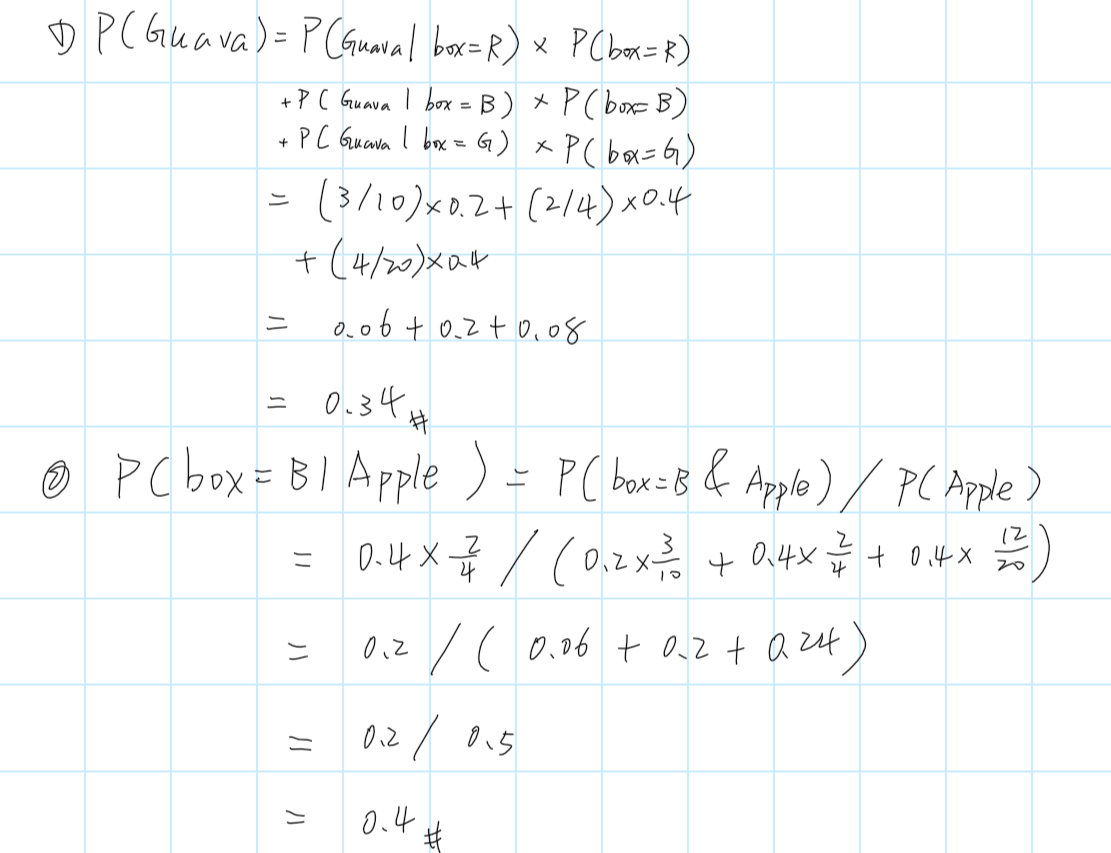 ① P(Guava) = P(Guava | box=R) × P(box=R)
+ P(Guava | box=B) × P(box=B)
+ P(Guava | box=G) × P(box=G)
= (3/10)×0.2 + (2/4)×0.4
+ (4/20)×0.4
= 0.06 + 0.2 + 0.08
= 0.34 #
② P(box=B | Apple) = P(box=B & Apple) / P(Apple)
= 0.4 × 2/4 / (0.2 × 3/10 + 0.4 × 2/4 + 0.4 × 12/20)
= 0.2 / (0.06 + 0.2 + 0.24)
= 0.2 / 0.5
= 0.4 #